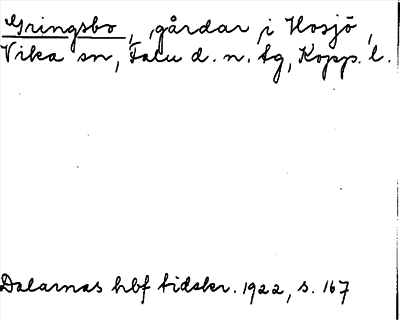 Gringsbo, gårdar i Hosjö,
Vika sn, Falu d. n. tg, Kopp. l.
Dalarnas hbf tidskr. 1922, s. 167